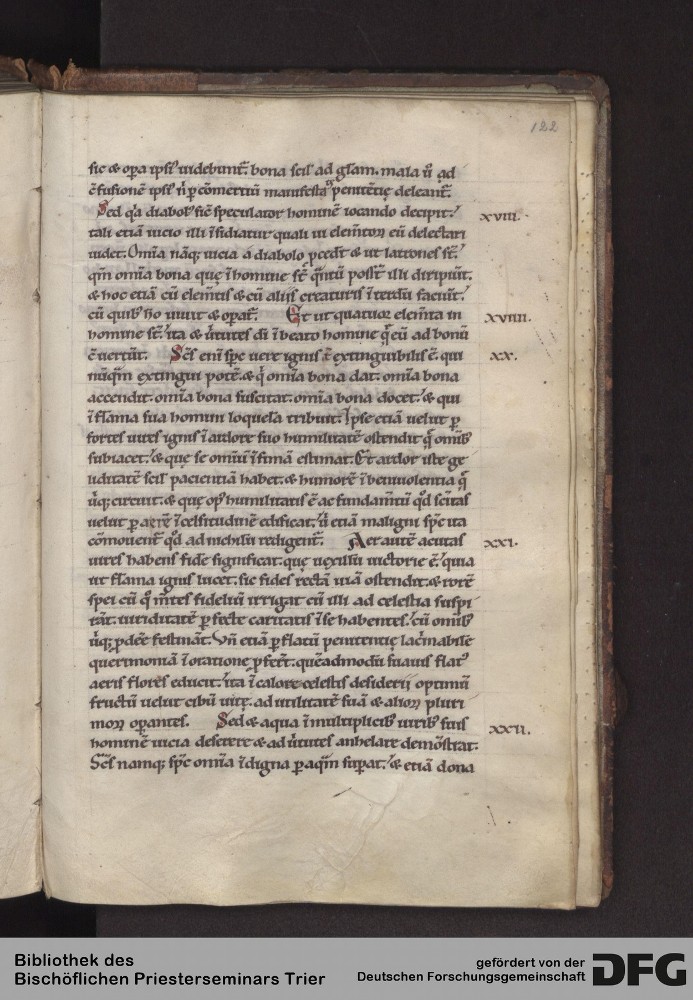 122
sic & opa ipsi᷒ uidebunt᷑. bona scil᷒ ad glam. mala ū ad
ɔ̄fusionē ipsi᷒ n̄ p cōmertiū manifesta penitētię deleant᷑.
Sed qͣa diabol᷒ sic̄ speculator hominē iocando decipit:
xviii.
tali etiā uicio illi īsidiatur quali uı elem̄toꝝ eū delectari
uidet. Om̄ia nāq; uicia a diabolo pcedt̄ & ut latrones st̄.
qm̄ omīa bona quę ī homine st̄ qͣntū posst̄ illi diripiūt.
& hoc etiā cū elem̄tis & cū aliis creaturis īterdū faciūt.
cū quib᷒ ho uiuit & opat᷑. Et ut quatuor elem̄ta in
xviiii.
homine st̄. ita & ūtutes dı̄ ī beato homine q̄ eū ad bonū
ɔ̄uertūt. Sc̄s enī spc̄ uere ignis ē extinguibilis ē. qui
xx.
nūqm̄ extingui potē. & qͥ omīa bona dat. omīa bona
accendit. omīa bona suscitat. omīa bona docet. & qui
ī flāma sua homini loquelā tribuit. Ipse etiā uelut p
fortes uires ignis ī ardore suo humilitatē ostendit q̄ omīb᷒
subiacet. & quę se omniū īfimā estimat. Et ardor iste ge
liditatē scil᷒ pacientiā habet. & humorē ī beniuolentia q̄
ūq; circuit. & quę op᷒ humilitatis ē ac fundam̄tū qd̄ sc̄itas
uelut p aere ī celsitudinē edificat. ū etiā maligni spc̄ ita
cōmouent᷑ qd̄ ad nichilū redigent᷑. Aer autē acutas
xxi.
uires habens fidē significat. quę uexillū uictorie ē. quia
ut flāma ignis lucet. sic fides rectā uiā ostendit. & rorē
spei cū qͦ m̄tes fideliū irrigat cū illi ad celestia suspi
rāt. uiriditatē pfecte caritatis ī se habentes. cū omīb᷒
ūq; pdēe festināt. Vn̄ etiā p flatū penitentię lacͥmabilē
querimoniā ī oratione pfert̄. quēadmodū suauis flat᷒
aeris flores educit. ita ī calore celestis desiderij optimū
fructū uelut cibū uitę. ad utilitatē suā & alioꝝ pluri
moꝝ opantes. Sed & aqua ī multiplicib᷒ uirib᷒ suis
xxii.
hominē uicia deserere & ad ūtutes anhelare demōstrat.
Sc̄s namq; spc̄ omīa īdigna p aqm̄ supat. & etiā dona
Bibliothek des
Bischöflichen Priesterseminars Trier
gefördert von der
Deutschen Forschungsgemeinschaft
DFG